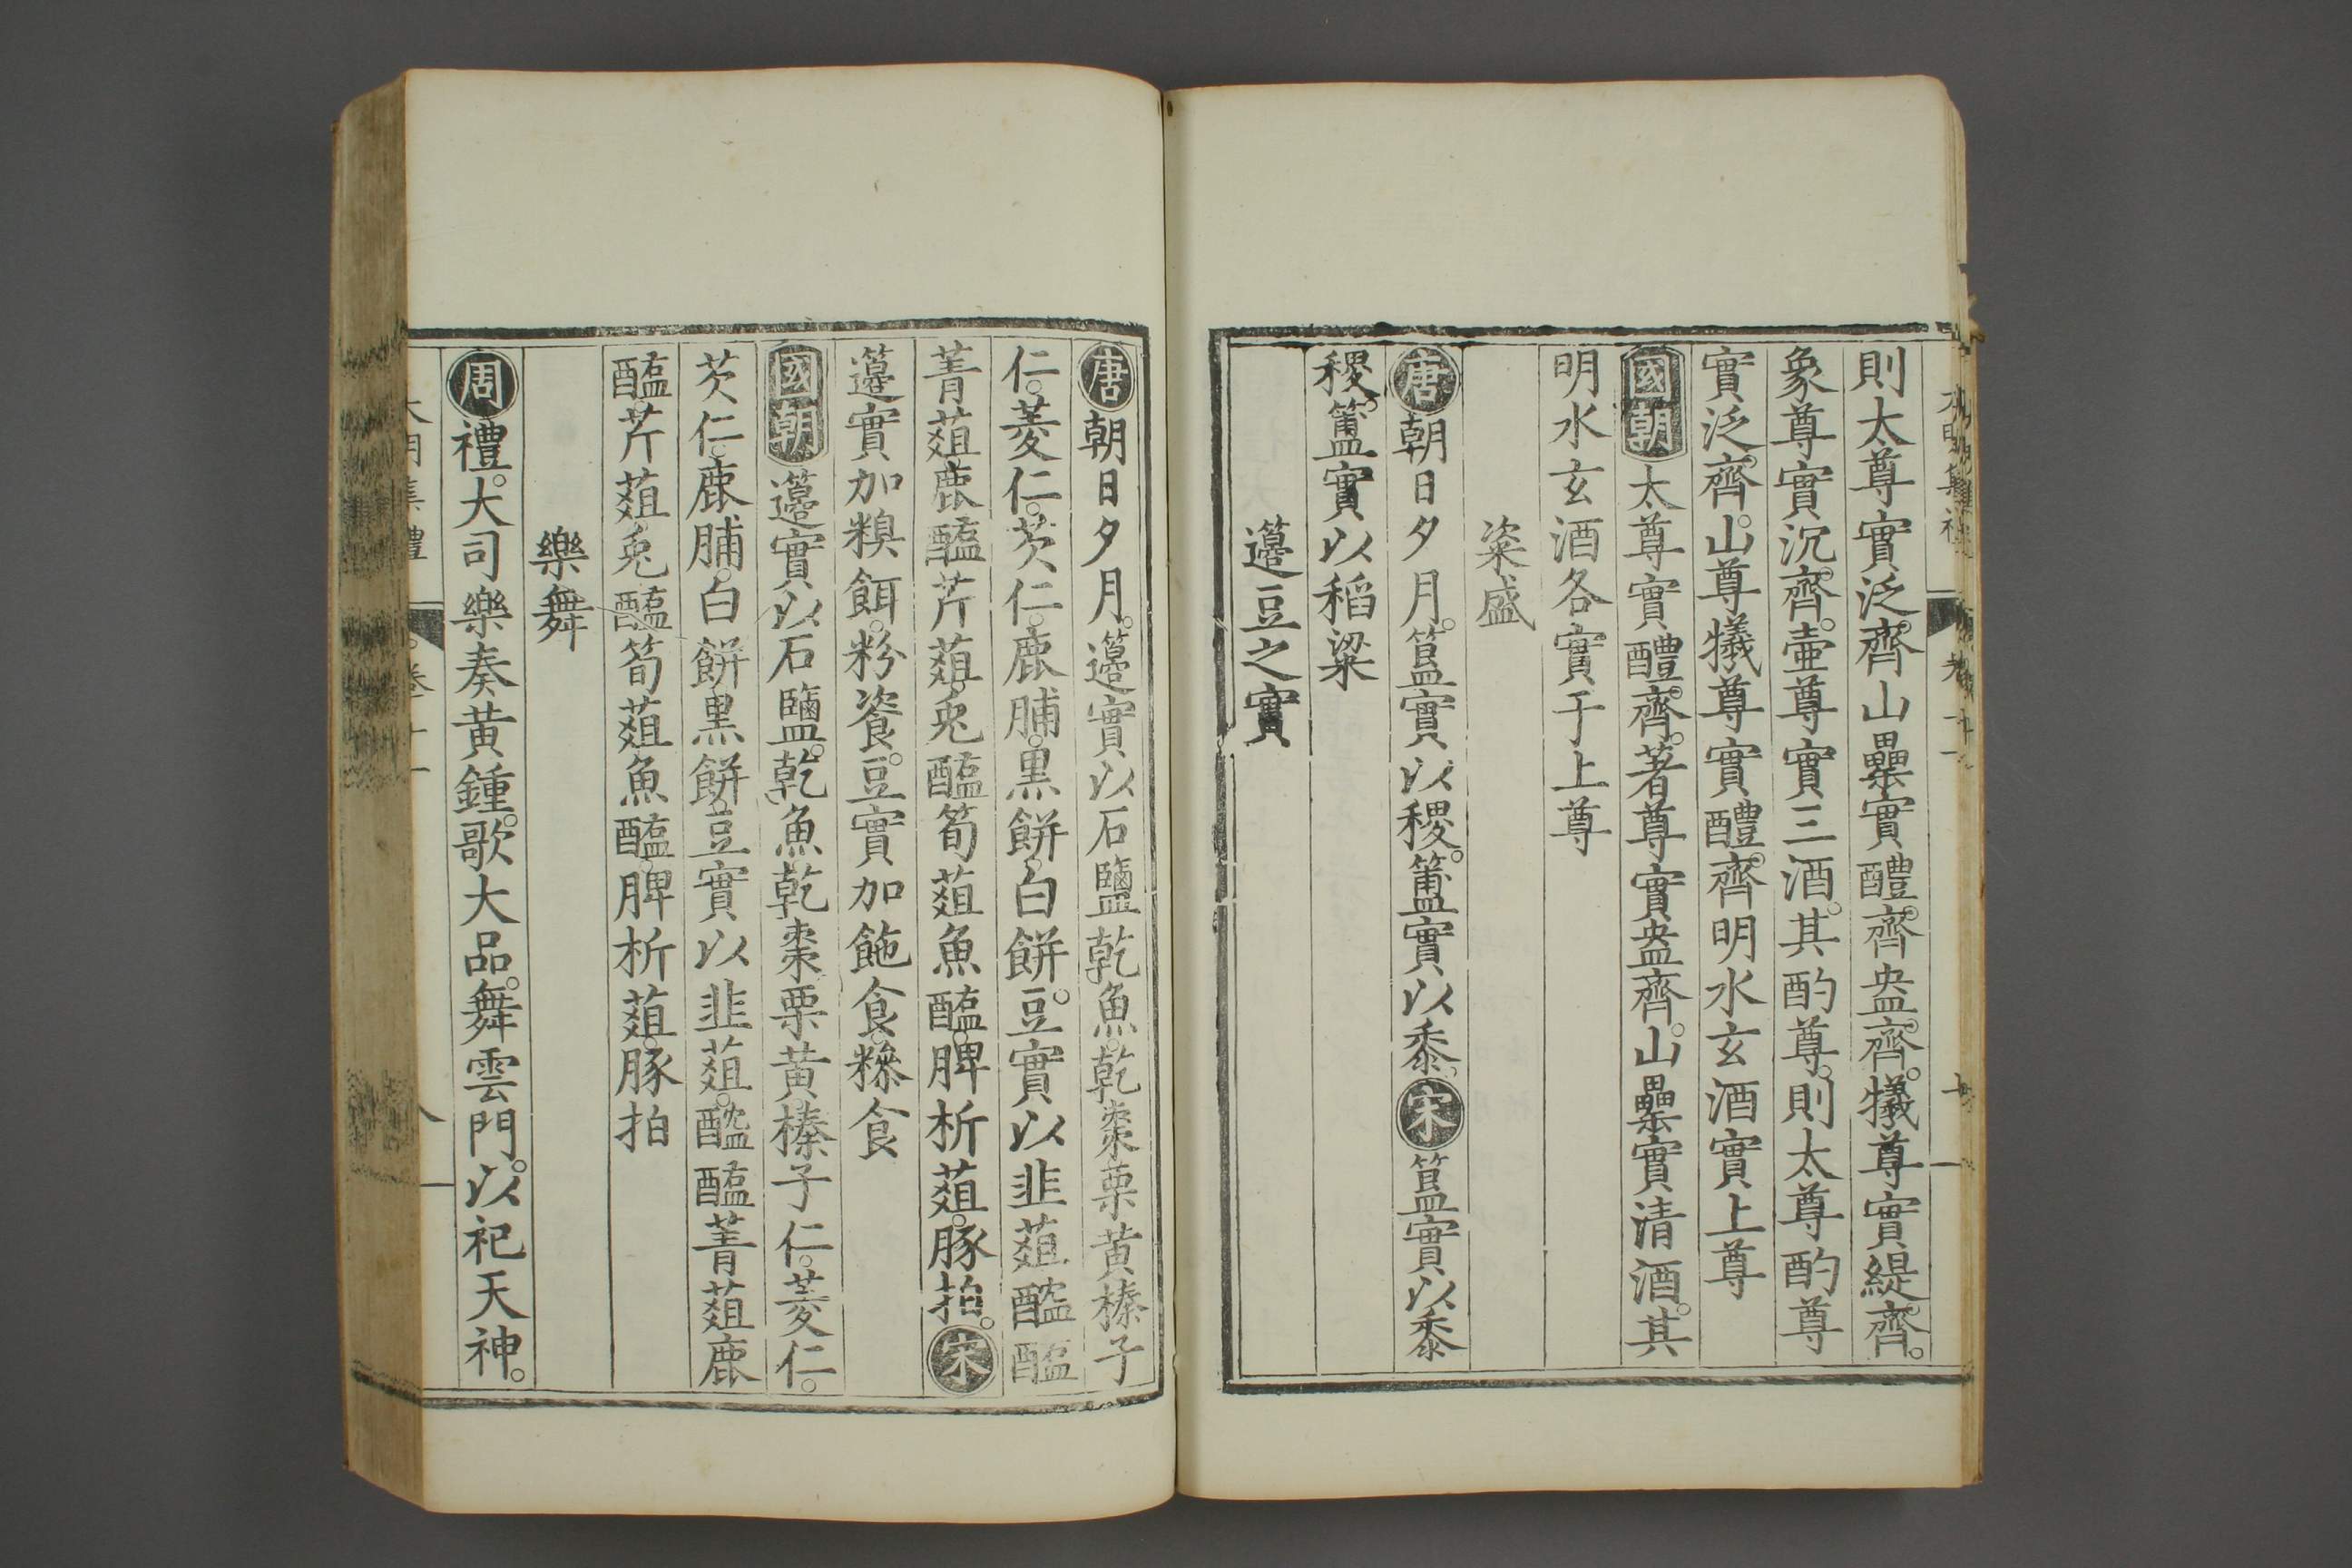 則太尊實泛齊。山罍實醴齊。盎齊。犧尊實緹齊。
象尊實沉齊。壺尊實三酒。其酌尊。則太尊酌尊
實泛齊。山尊犧尊實醴齊。明水玄酒實上尊
國朝太尊實醴齊。著尊實盎齊。山罍實清酒。其
明水玄酒各實于上尊
粢盛
唐朝日夕月。簋實以稷。簠實以黍。宋簋實以黍
稷。簠實以稻粱
籩豆之實
唐朝日夕月。籩實以石鹽乾魚。乾棗栗黄榛子
仁。菱仁。芡仁。鹿脯。黒餅。白餅。豆實以韭葅醓醢
菁葅。鹿醢芹葅。兎醢筍葅魚醢。脾析葅。豚拍。宋
籩實加糗餌。粉餈。豆實加飽食。糝食
國朝籩實以石鹽。乾魚乾棗栗黄。榛子仁。菱仁。
芡仁。鹿脯。白餅黒餅。豆實以韭葅。醓醢菁葅鹿
醢。芹葅兎醢筍葅魚醢。脾析葅。豚拍
樂舞
周禮。大司樂奏黄鍾。歌大品。舞雲門。以祀天神。
大明集禮 卷十一 八